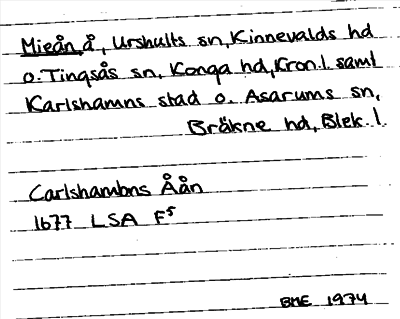 Mieån, å, Urshults sn, Kinnevalds hd
o. Tingsås sn, Konga hd, Kron. l. samt
Karlshamns stad o. Asarums sn,
Bräkne hd, Blek. l.
Carlshambns Åån
1677 LSA F⁵
BME 1974